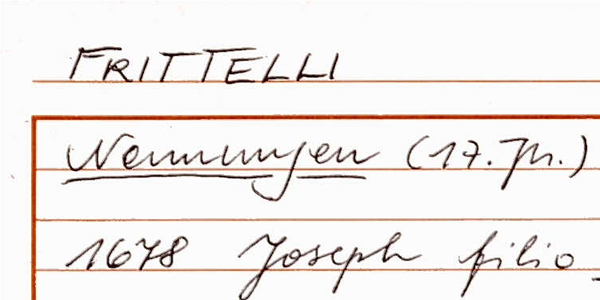 FRITTELLI
Nennungen (17. Jh.)
1678 Joseph filio